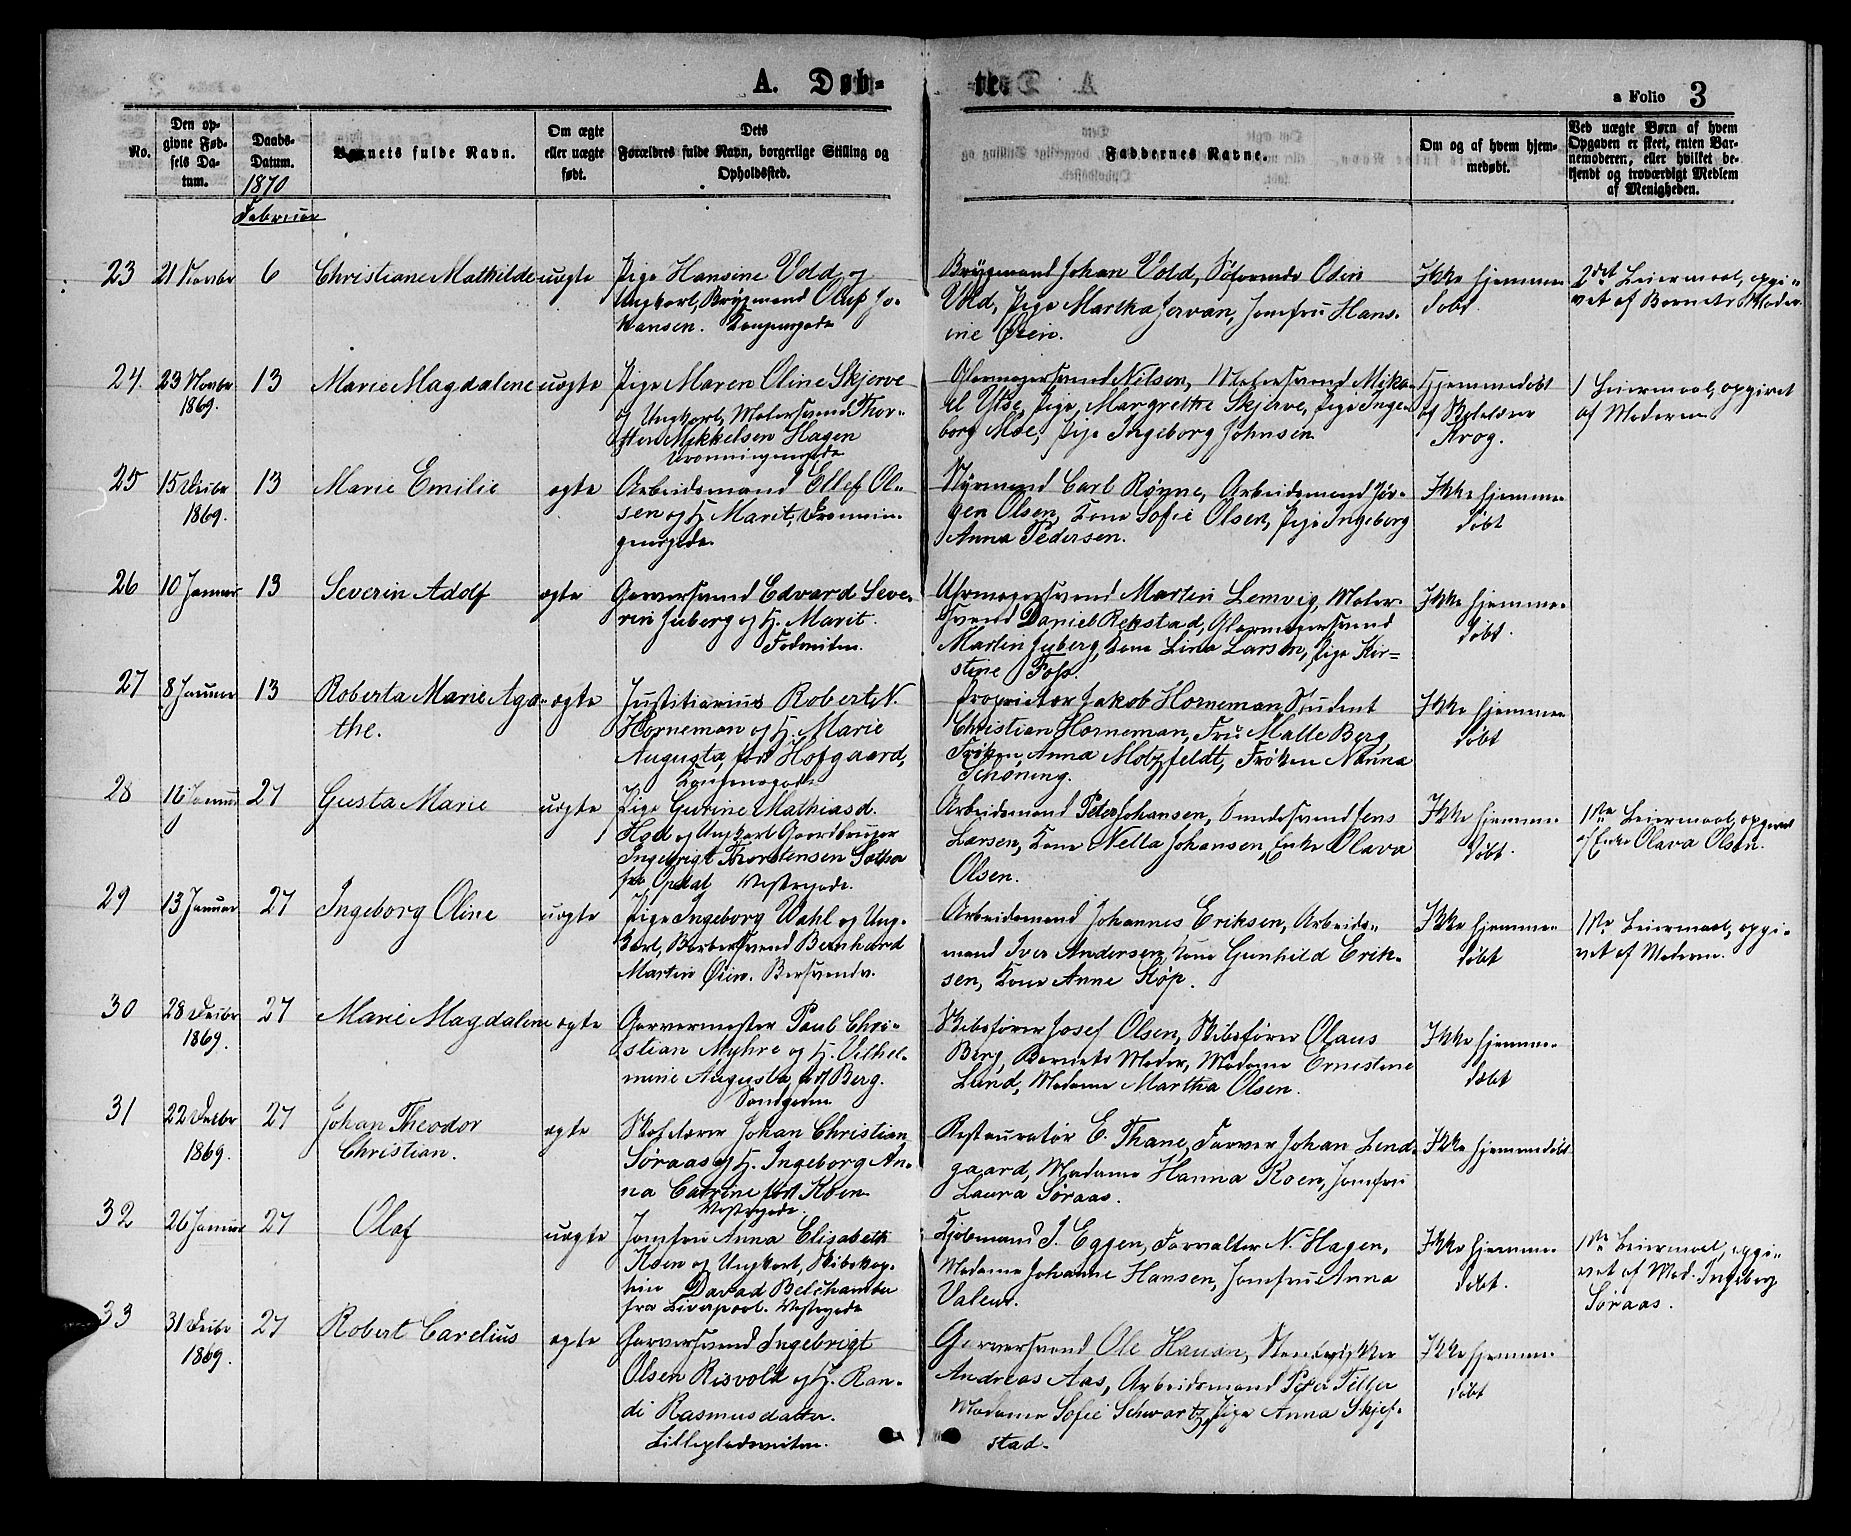 A. Døb-
te.
a Folio 3
No.
Den op-
givne Fød-
sels Da-
tum.
Daabs-
Datum.
1870
Februar
Barnets fulde Navn.
Om ægte
eller uægte
født.
Dets
Forældres fulde Navn, borgerlige Stilling og
Opholdssted.
Faddernes Navne.
Om og af hvem hjem-
medøbt.
Ved uægte Børn af hvem
Opgaven er skeet, enten Bar-
nemoderen, eller hvilket be-
kjendt og troværdigt Medlem
af Menigheden.
23 21 Novbr 6 Christiane Mathilde uægte
Pige Hansine Vold og
Ungkarl, Brygmand Oluf Jo-
hansen.
Brygmand Johan Vold, Søfarende Odin
Vold, Pige Martha Jervan, Jomfru Han-
sine Øien.
Ikke hjemme-
døbt
2det Leiermaal, opgi-
vet af Barnets Moder.
24. 23 Novbr 13 Marie Magdalene uægte
1869.
Pige Maren Oline Skjerve
og Ungkarl, Malersvend Thor-
sten Mikkelsen Hagen
Dronningensgade
Glarmagersvend Nilsen, Malersvend Mika-
el Ytse, Pige Margrethe Skjerve, Pige Inge-
borg Moe, Pige Ingeborg Johnsen
Hjemmedøbt
af Skolelærer
Krog.
1 Leiermaal, opgivet
af Moderen
25 15 Decbr 13 Marie Emilie ægte
1869.
Arbeidsmand Ellef Ol-
sen og H. Marit, Dronnin-
gensgade
Styrmand Carl Røyne, Arbeidsmand Jør-
gen Olsen, Kone Sofie Olsen, Pige Ingeborg
Anna Pedersen.
Ikke hjemme-
døbt
26 10 Januar 13 Severin Adolf ægte
Garversvend Edvard Seve-
rin Juberg og H. Marit.
Uhrmagersvend Martin Lemvig, Maler-
svend Daniel Rekstad, Glarmagersvend
Martin Juberg, Kone Lina Larsen, Pige Kir-
stine Foss.
Ikke hjemme-
døbt.
27 8 Januar 13 Roberta Marie Aga- ægte
the.
Justitiarius Robert N.
Horneman og H. Marie
Augusta, født Hofgaard,
Proprietær Jakob Horneman Student
Christian Horneman, Fru Malle Berg
Frøken Anna Motzfeldt, Frøken Nanna
Schøning.
Ikke hjemme-
døbt
28 16 Januar 27 Gusta Marie uægte
Pige Gurine Mathiasd.
og Ungkarl Gaardbruger
Ingebrigt Thorstensen
fra Opdal Vestregade.
Arbeidsmand Peter Johansen, Smedesvend Jens
Larsen, Kone Nella Johansen, Enke Olava
Olsen.
Ikke hjemme-
døbt.
1ste Leiermaal, opgivet
af Enke Olava Olsen.
29 13 Januar 27 Ingeborg Oline uægte
Pige Ingeborg Wahl og Ung-
karl, Barbersvend Bernhard
Martin Øien.
Arbeidsmand Johannes Eriksen, Arbeids-
mand Iver Andersen, Kone Gunhild Erik-
sen, Kone Anne Støp.
Ikke hjemme-
døbt
1ste Leiermaal, opgi-
vet af Moderen.
30 28 Decbr 27 Marie Magdalene ægte
1869.
Garvermester Paul Chri-
stian Myhre og H. Vilhel-
mine Augusta, født Berg.
Sandgaden
Skibsfører Josef Olsen, Skibsfører Olaus
Berg, Barnets Moder, Madame Ernestine
Lund, Madame Martha Olsen.
Ikke hjemme-
døbt
31 22 Decbr 27 Johan Theodor ægte
1869.
Christian.
Johan Christian
Søraas og H. Ingeborg An-
na Catrine født Roen
Vestregade.
Restauratør E. Thane, Farver Johan Lund-
gaard, Madame Hanna Roen, Jomfru
Laura Søraas.
Ikke hjemmedøbt
32 26 Januar 27 Olaf uægte
Jomfru Anna Elisabeth
Roen og Ungkarl, Skibskap-
tein David
fra Liverpool. Vestregade
Kjøbmand J. Eggen, Forvalter N. Hagen,
Madame Johanne Hansen, Jomfru Anna
Valeur.
Ikke hjemme-
døbt.
1ste Leiermaal, opgi-
vet af Mad. Ingeborg
Søraas.
33 31 Decbr 27 Robert Carelius ægte
1869.
Garversvend Ingebrigt
Olsen Risvold og H. Ran-
di Rasmusdatter.
Garversvend Ole Hauan,
Andreas Aas, Arbeidsmand Peter Tiller
Madame Sofie Schwartz, Pige Anna Skjef-
stad.
Ikke hjemme-
døbt